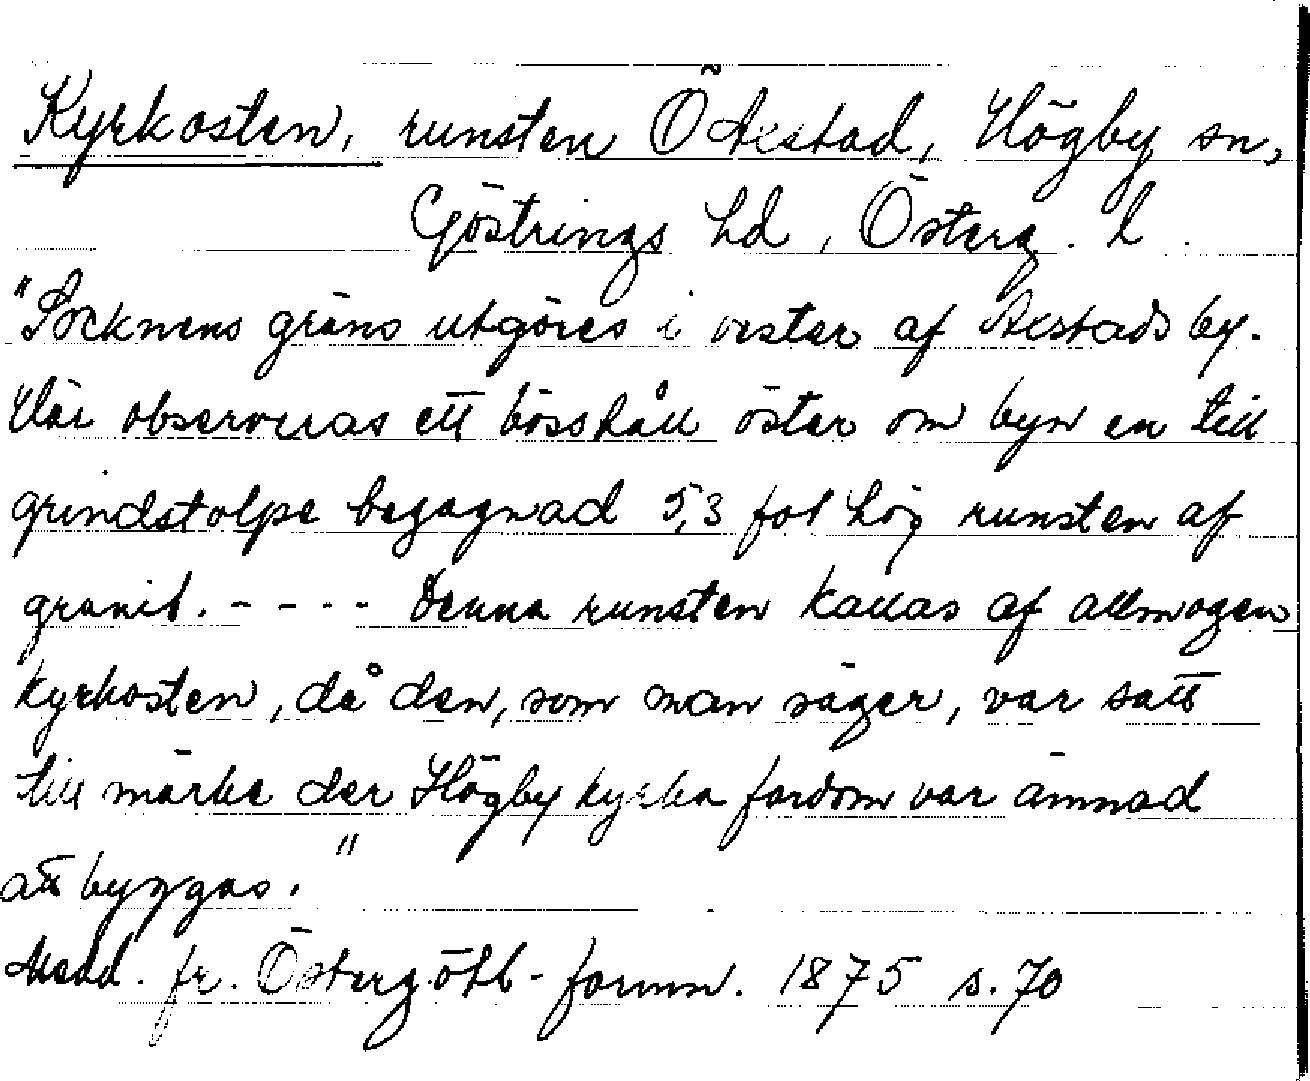 Kyrkosten, runsten Ö Axstad, Högby sn,
Göstrings hd, Österg. l.
"Socknens gräns utgöres i vester af Axstads by.
Här observeras ett bösshåll öster om byn en till
grindstolpe begagnad 5,3 fot hög runsten af
granit. - - - - Denna runsten kallas af allmogen
kyrkosten, då den, som man säger, var satt
till märke der Högby kyrka fordom var ämnad
att byggas."
Medd. fr. Östergötl. fornm. 1875 s. 70